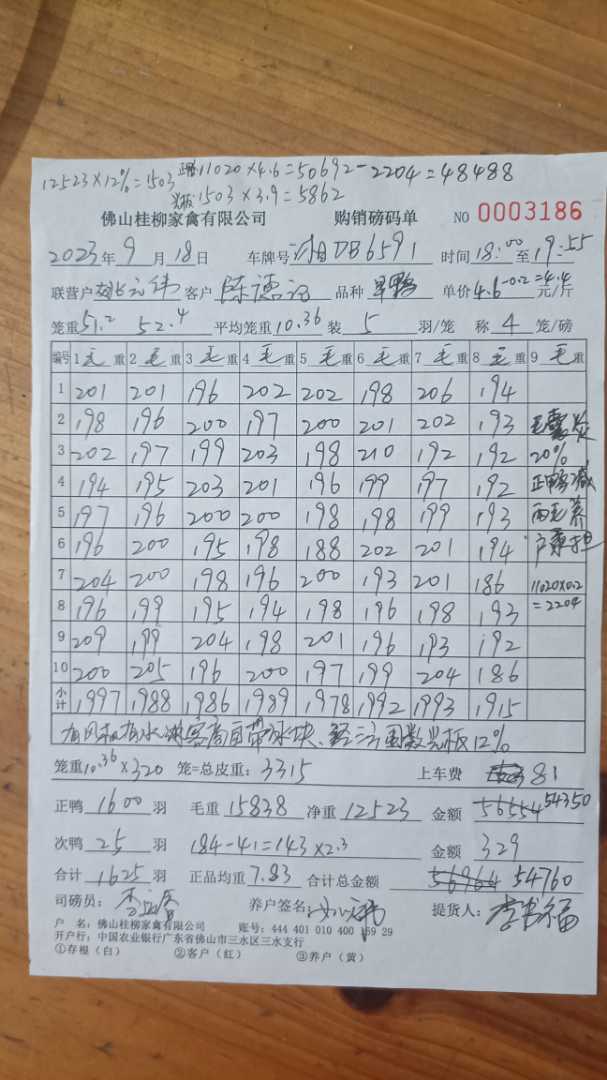 12523×12%=1503 11020×4.6=50692-2204=48488
1503×3.9=5862
佛山桂柳家禽有限公司 购销磅码单 NO 0003186
2023年9月18日 车牌号 DB6591 时间18:00至19:55
联营户 客户 陈德记 品种 旱鸭 单价4.6-0.2=4.4元/斤
笼重51.2 52.4 平均笼重10.36 装5羽/笼 称4笼/磅
编号 1毛重 2毛重 3毛重 4毛重 5毛重 6毛重 7毛重 8毛重 9毛重
1 201 201 196 202 202 198 206 194
2 198 196 200 197 200 201 202 193
3 202 197 199 203 198 210 192 192 20%
4 194 195 203 201 196 199 197 192 正鸭减
5 197 196 200 200 198 198 199 193 两毛养
6 196 200 195 198 188 202 201 194 户承担
7 204 200 198 196 200 193 201 186 11020×0.2
8 196 199 195 194 198 196 198 193 =2204
9 209 199 204 198 201 196 193 192
10 200 205 196 200 197 199 204 186
小计 1997 1988 1986 1989 1978 1992 1993 1915
有风机有水淋客商自带冰块、经三方围数光板12%
笼重10.36×320 笼=总皮重:3315 上车费 81
正鸭1600羽 毛重15838 净重12523 金额 56554 54350
次鸭25羽 184-41=143×2.3 金额 329
合计1625羽 正品均重7.83 合计总金额 56964 54760
司磅员: 养户签名: 提货人:李书福
户 名:佛山桂柳家禽有限公司 账号:444 401 010 400 159 29
开户行:中国农业银行广东省佛山市三水区三水支行
①存根(白) ②客户(红) ③养户(黄)